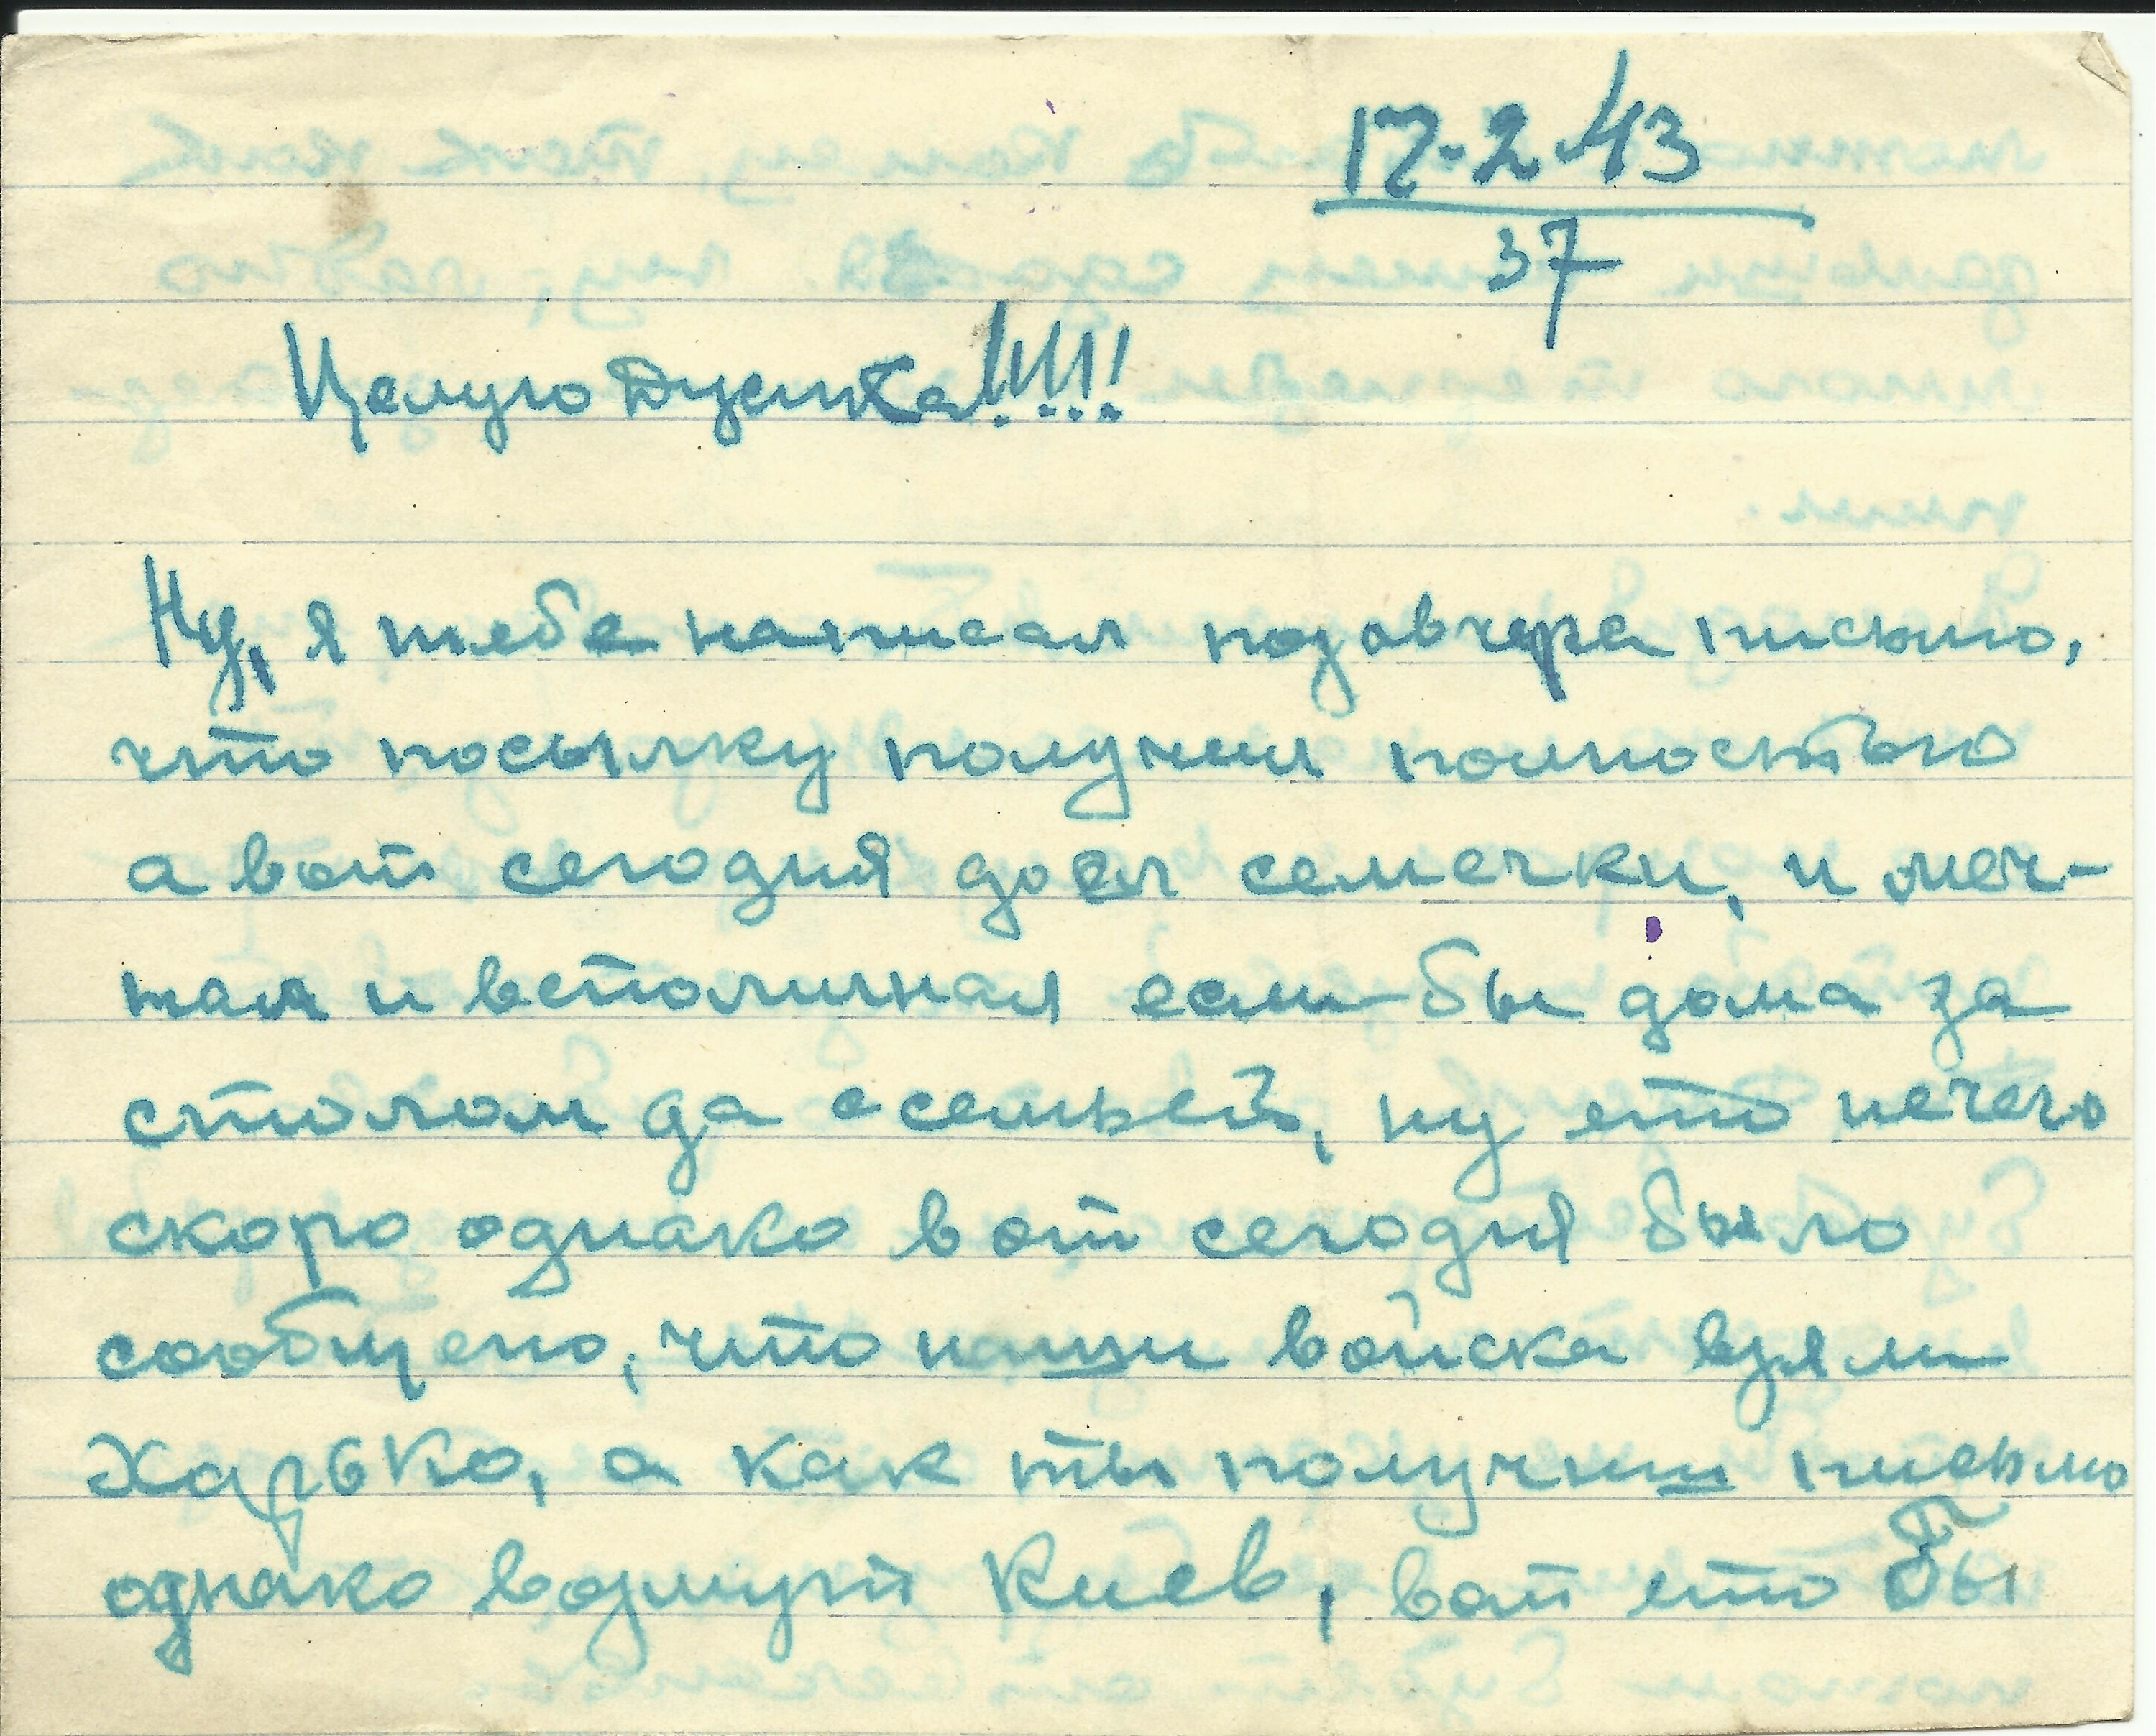 17-2-43
37
Целую Дуська!!!!!
Ну, я тебе написал позавчера письмо,
что посылку получил полностью
а вот сегодня доел семечки, и меч-
тал и вспоминал если-бы дома за
столом да с семьей, ну ето нечего
скоро однако вот сегодня было
сообщено, что наши войска взяли
Харько, а как ты получиш письмо
однако возмут Киев, вот ето бы